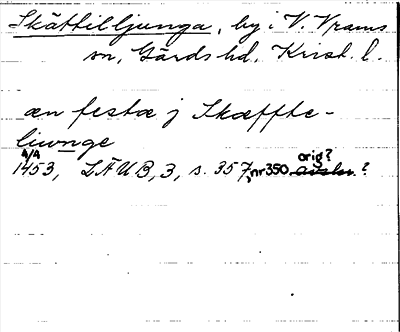 Skättilljunga, by i V. Vrams
sn, Gärds hd, Krist. l.
æn festæ j Skæffte-
liwnge
4/9
1453, LÄUB, 3, s. 357, nr 350 orig? avskr. ?